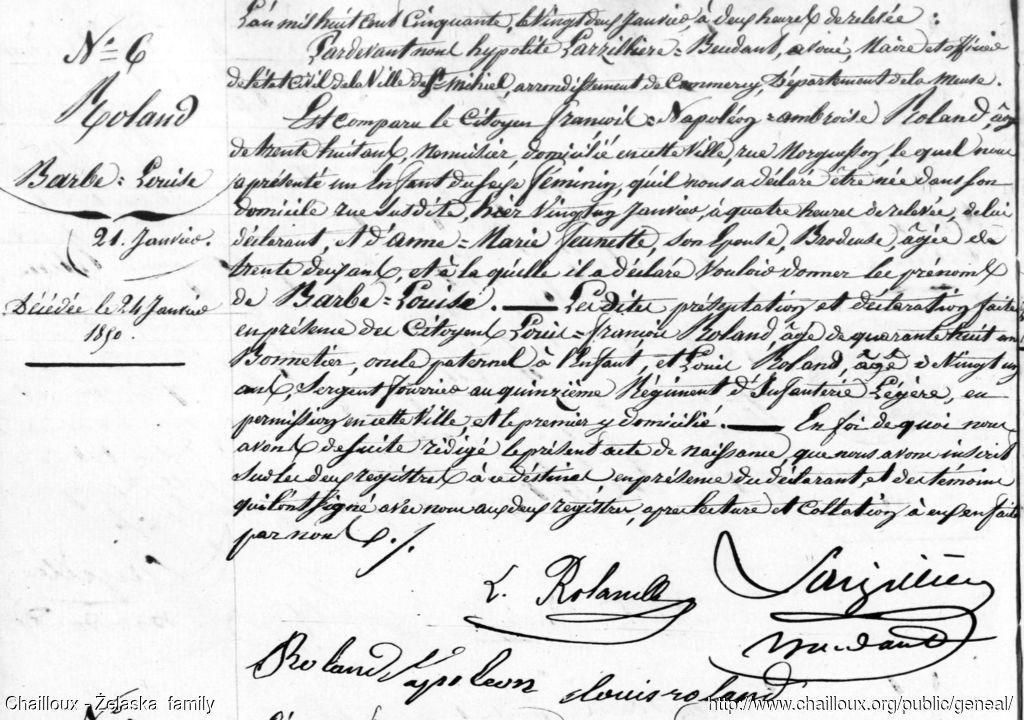 N° 6
Roland
Barbe = Louise
21. Janvier.
Décédée le 24 Janvier
1850.
L'an mil huit cent Cinquante, le Vingt deux Janvier, à deux heures de relevée :
Pardevant nous hypolite Larzilliere = Beudant, Maire et officier
de l'état Civil de la Ville de St. mihiel, arrondissement de Commercy, Département de la Meuse.
Est comparu le Citoyen francois = Napoléon = ambroise Roland, âgé
de trente huit ans, Menuisier, domicilié en cette Ville, rue le quel nous
a présenté un Enfant du sexe féminin, qu'il nous a déclaré être née dans son
domicile rue susdite, hier Vingt un Janvier, à quatre heures de relevée, de lui
déclarant, et d'anne = Marie Jeunette, son Epouse, Brodeuse, âgée de
trente deux ans, et à la quelle il a déclaré vouloir donner les prénoms
de Barbe = Louise. — Les dites présentation et déclaration faites
en présence des Citoyens Louis = françois Roland, âgé de quarante huit ans
Bonnetier, oncle paternel à l'Enfant, et Louis Roland, âgé de Vingt un
ans, Sergent fourrier au quinzième Régiment d'Infanterie Légère, en
permission en cette Ville et le premier y domicilié. — En foi de quoi nous
avons de suite rédigé le présent acte de naissance, que nous avons inscrit
sur les deux registres à ce destinés en présence du déclarant, et des témoins
qui ont signé avec nous aux deux régistres, après lecture et Collation à eux en faite
par nous
L. Roland
Larzillière
Beudant
Roland Napoleon
louis roland
N°
Chailloux - Żelaska family
http://www.chailloux.org/public/geneal/